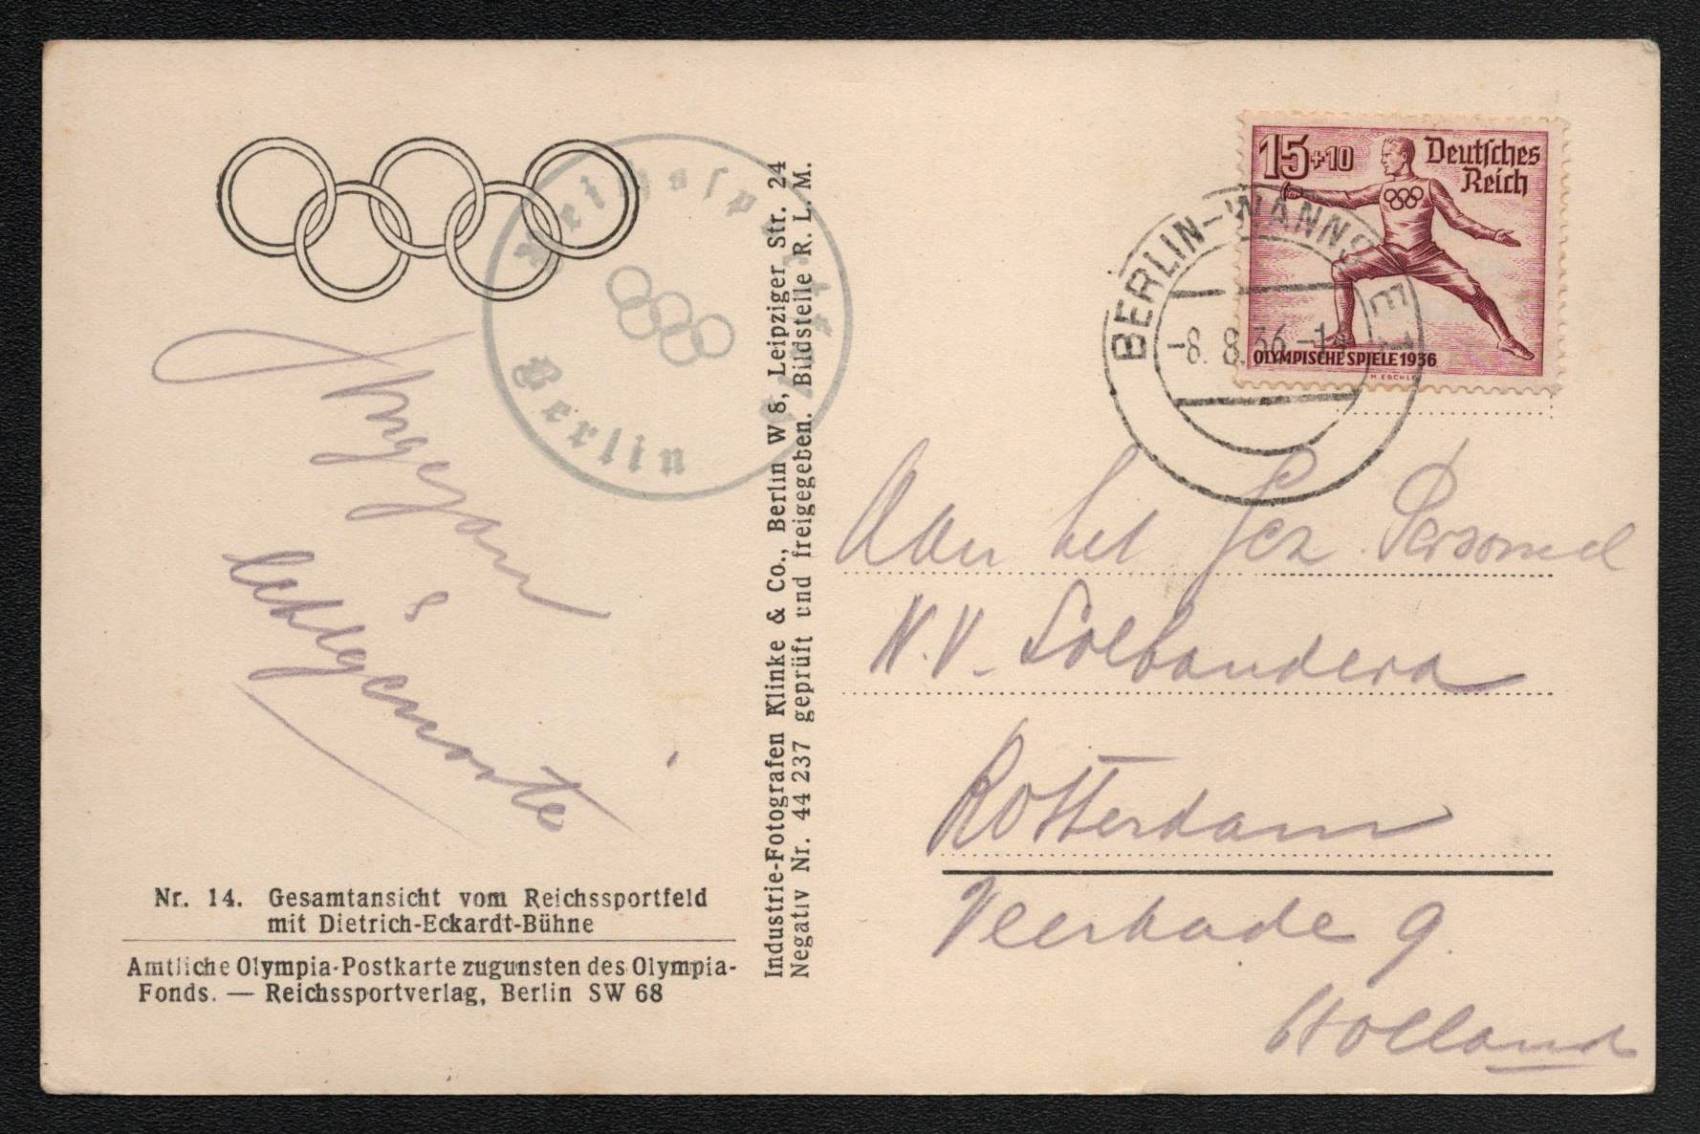 Reichssport
Berlin
Nr. 14. Gesamtansicht vom Reichssportfeld
mit Dietrich-Eckardt-Bühne
Amtliche Olympia-Postkarte zugunsten des Olympia-
Fonds. — Reichssportverlag, Berlin SW 68
Industrie-Fotografen Klinke & Co., Berlin W 8, Leipziger Str. 24
Negativ Nr. 44 237 geprüft und freigegeben. Bildstelle R. L. M.
15+10
Deutsches
Reich
OLYMPISCHE SPIELE 1936
BERLIN-WANNSEE
-8. 8. 36 -
Aan het Gez. Personeel
N.V.
Rotterdam
Veerkade 9.
Holland